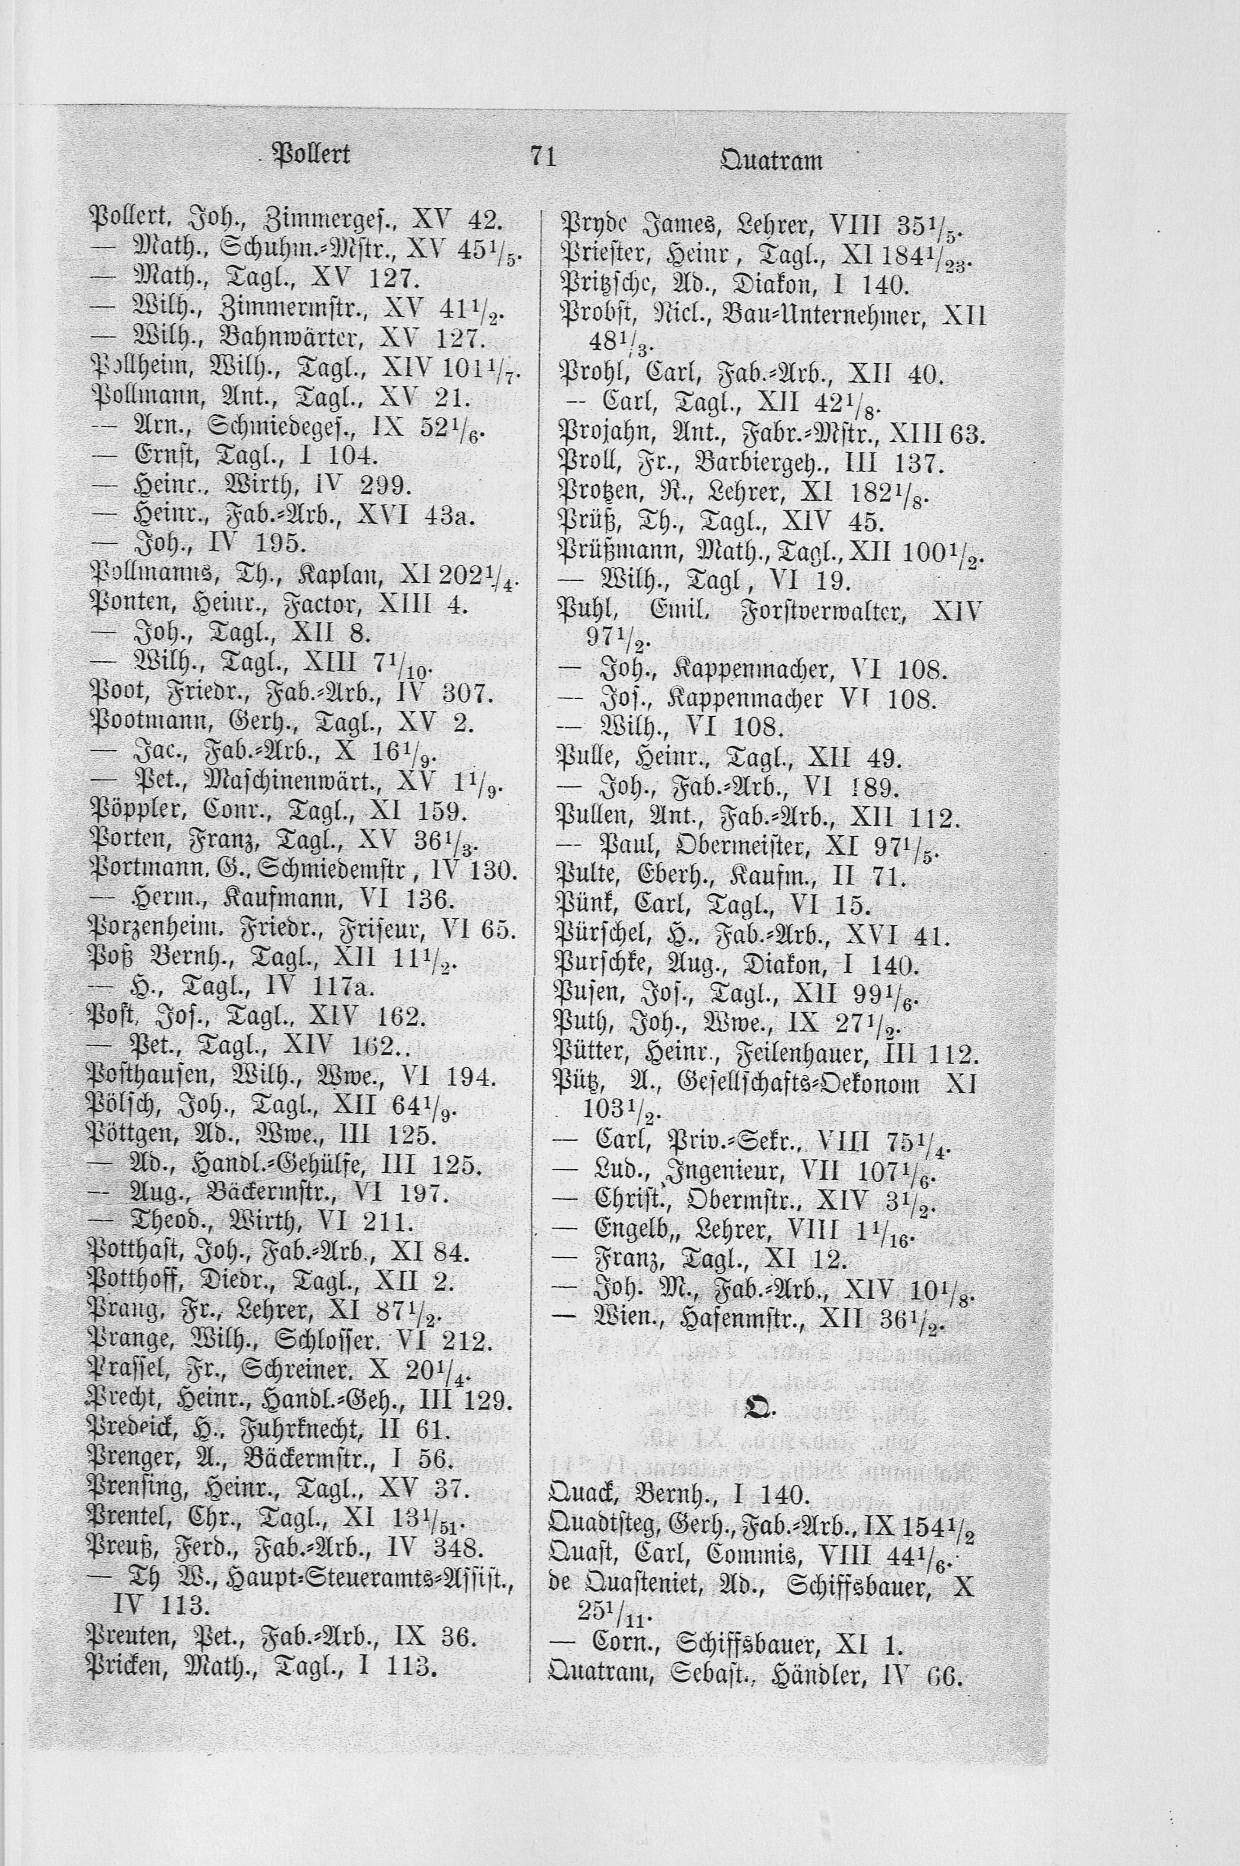 Pollert 71 Quatram
Pollert, Joh., Zimmerges., XV 42.
— Math., Schuhm.=Mstr., XV 45 1/5.
— Math., Tagl., XV 127.
— Wilh., Zimmermstr., XV 41 1/2.
— Wilh., Bahnwärter, XV 127.
Pollheim, Wilh., Tagl., XIV 101 1/7.
Pollmann, Ant., Tagl., XV 21.
— Arn., Schmiedeges., IX 52 1/6.
— Ernst, Tagl., I 104.
— Heinr., Wirth, IV 299.
— Heinr., Fab.=Arb., XVI 43a.
— Joh., IV 195.
Pollmanns, Th., Kaplan, XI 202 1/4.
Ponten, Heinr., Factor, XIII 4.
— Joh., Tagl., XII 8.
— Wilh., Tagl., XIII 7 1/10.
Poot, Friedr., Fab.=Arb., IV 307.
Pootmann, Gerh., Tagl., XV 2.
— Jac., Fab.=Arb., X 16 1/9.
— Pet., Maschinenwärt., XV 1 1/9.
Pöppler, Conr., Tagl., XI 159.
Porten, Franz, Tagl., XV 36 1/3.
Portmann, G., Schmiedemstr, IV 130.
— Herm., Kaufmann, VI 136.
Porzenheim, Friedr., Friseur, VI 65.
Poß Bernh., Tagl., XII 11 1/2.
— H., Tagl., IV 117a.
Post, Jos., Tagl., XIV 162.
— Pet., Tagl., XIV 162..
Posthausen, Wilh., Wwe., VI 194.
Pölsch, Joh., Tagl., XII 64 1/9.
Pöttgen, Ad., Wwe., III 125.
— Ad., Handl.=Gehülfe, III 125.
— Aug., Bäckermstr., VI 197.
— Theod., Wirth, VI 211.
Potthast, Joh., Fab.=Arb., XI 84.
Potthoff, Diedr., Tagl., XII 2.
Prang, Fr., Lehrer, XI 87 1/2.
Prange, Wilh., Schlosser, VI 212.
Prassel, Fr., Schreiner, X 20 1/4.
Precht, Heinr., Handl.=Geh., III 129.
Predeick, H., Fuhrknecht, II 61.
Prenger, A., Bäckermstr., I 56.
Prensing, Heinr., Tagl., XV 37.
Prentel, Chr., Tagl., XI 13 1/51.
Preuß, Ferd., Fab.=Arb., IV 348.
— Th W., Haupt=Steueramts=Assist.,
IV 113.
Preuten, Pet., Fab.=Arb., IX 36.
Pricken, Math., Tagl., I 113.
Pryde James, Lehrer, VIII 35 1/5.
Priester, Heinr, Tagl., XI 184 1/23.
Pritzsche, Ad., Diakon, I 140.
Probst, Nicl., Bau=Unternehmer, XII
48 1/3.
Prohl, Carl, Fab.=Arb., XII 40.
— Carl, Tagl., XII 42 1/8.
Projahn, Ant., Fabr.=Mstr., XIII 63.
Proll, Fr., Barbiergeh., III 137.
Protzen, R., Lehrer, XI 182 1/8.
Prüß, Th., Tagl., XIV 45.
Prüßmann, Math., Tagl., XII 100 1/2.
— Wilh., Tagl, VI 19.
Puhl, Emil, Forstverwalter, XIV
97 1/2.
— Joh., Kappenmacher, VI 108.
— Jos., Kappenmacher VI 108.
— Wilh., VI 108.
Pulle, Heinr., Tagl., XII 49.
— Joh., Fab.=Arb., VI 189.
Pullen, Ant., Fab.=Arb., XII 112.
— Paul, Obermeister, XI 97 1/5.
Pulte, Eberh., Kaufm., II 71.
Pünk, Carl, Tagl., VI 15.
Pürschel, H., Fab.=Arb., XVI 41.
Purschke, Aug., Diakon, I 140.
Pusen, Jos., Tagl., XII 99 1/6.
Puth, Joh., Wwe., IX 27 1/2.
Pütter, Heinr., Feilenhauer, III 112.
Pütz, A., Gesellschafts=Oekonom XI
103 1/2.
— Carl, Priv.=Sekr., VIII 75 1/4.
— Lud., Ingenieur, VII 107 1/6.
— Christ., Obermstr., XIV 3 1/2.
— Engelb,, Lehrer, VIII 1 1/16.
— Franz, Tagl., XI 12.
— Joh. M., Fab.=Arb., XIV 10 1/8.
— Wien., Hafenmstr., XII 36 1/2.
Q.
Quack, Bernh., I 140.
Quadtsteg, Gerh., Fab.=Arb., IX 154 1/2
Quast, Carl, Commis, VIII 44 1/6.
de Quasteniet, Ad., Schiffsbauer, X
25 1/11.
— Corn., Schiffsbauer, XI 1.
Quatram, Sebast., Händler, IV 66.